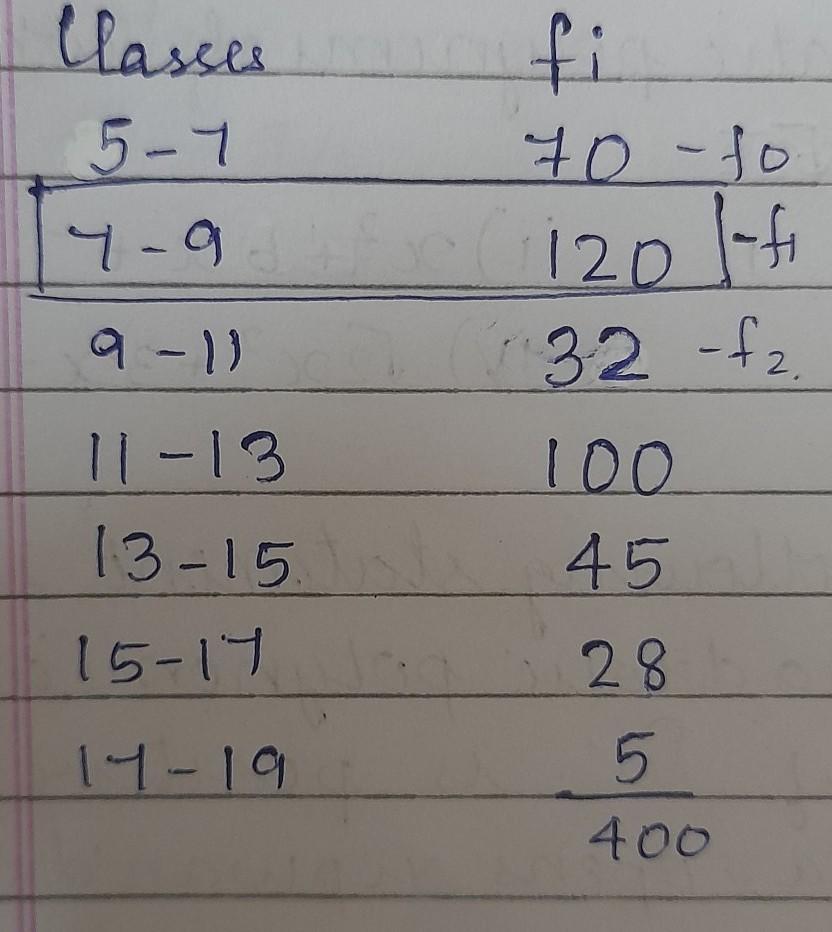 Classes fi
5-7 70 - f0
7-9 120 - f1
9-11 32 - f2.
11-13 100
13-15 45
15-17 28
17-19 5
400